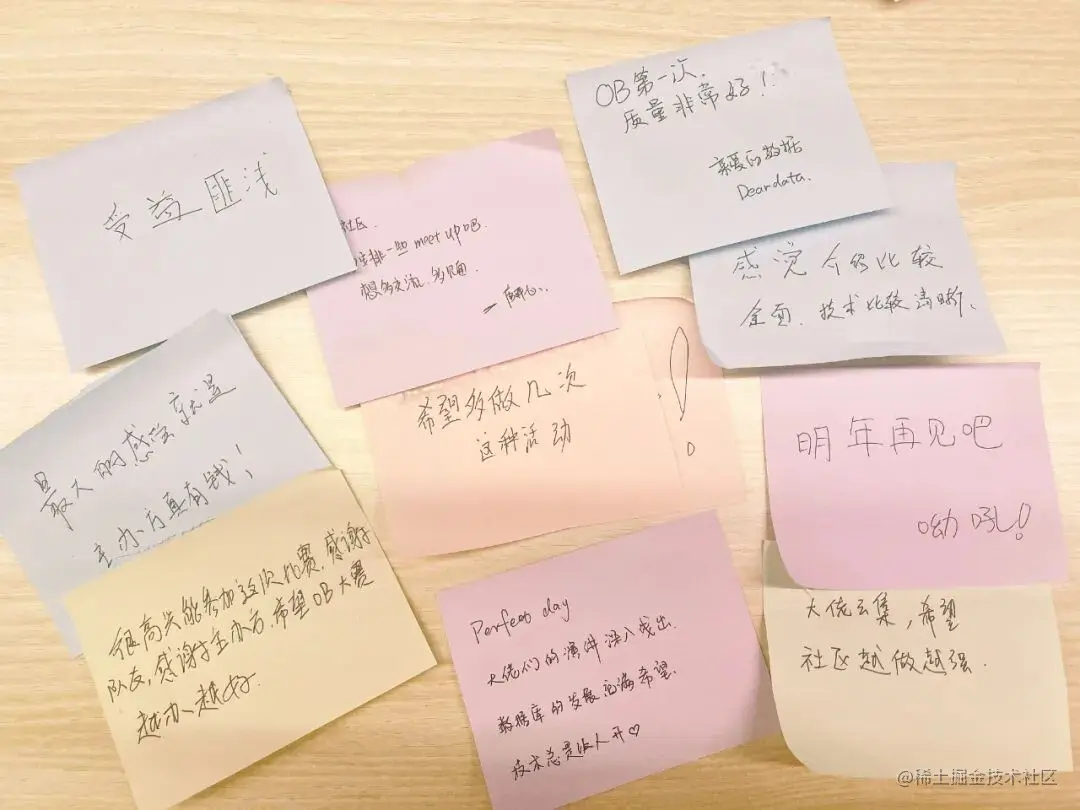 受益匪浅
OB第一次，
质量非常好！
亲爱的数据
Deardata.
社区
排一些meet up吧
想多交流，多见面.
感觉介绍比较
全面、技术比较清晰、
希望多做几次
这种活动
！
明年再见吧
呦吼！
最大的感受就是
主办方真有钱！
很高兴能参加这次比赛，感谢
队友，感谢主办方，希望OB大赛
越办越好.
Perfect day
大佬们的演讲深入浅出.
数据库的发展充满希望.
技术总是让人开♡
大佬云集，希望
社区越做越强.
@稀土掘金技术社区